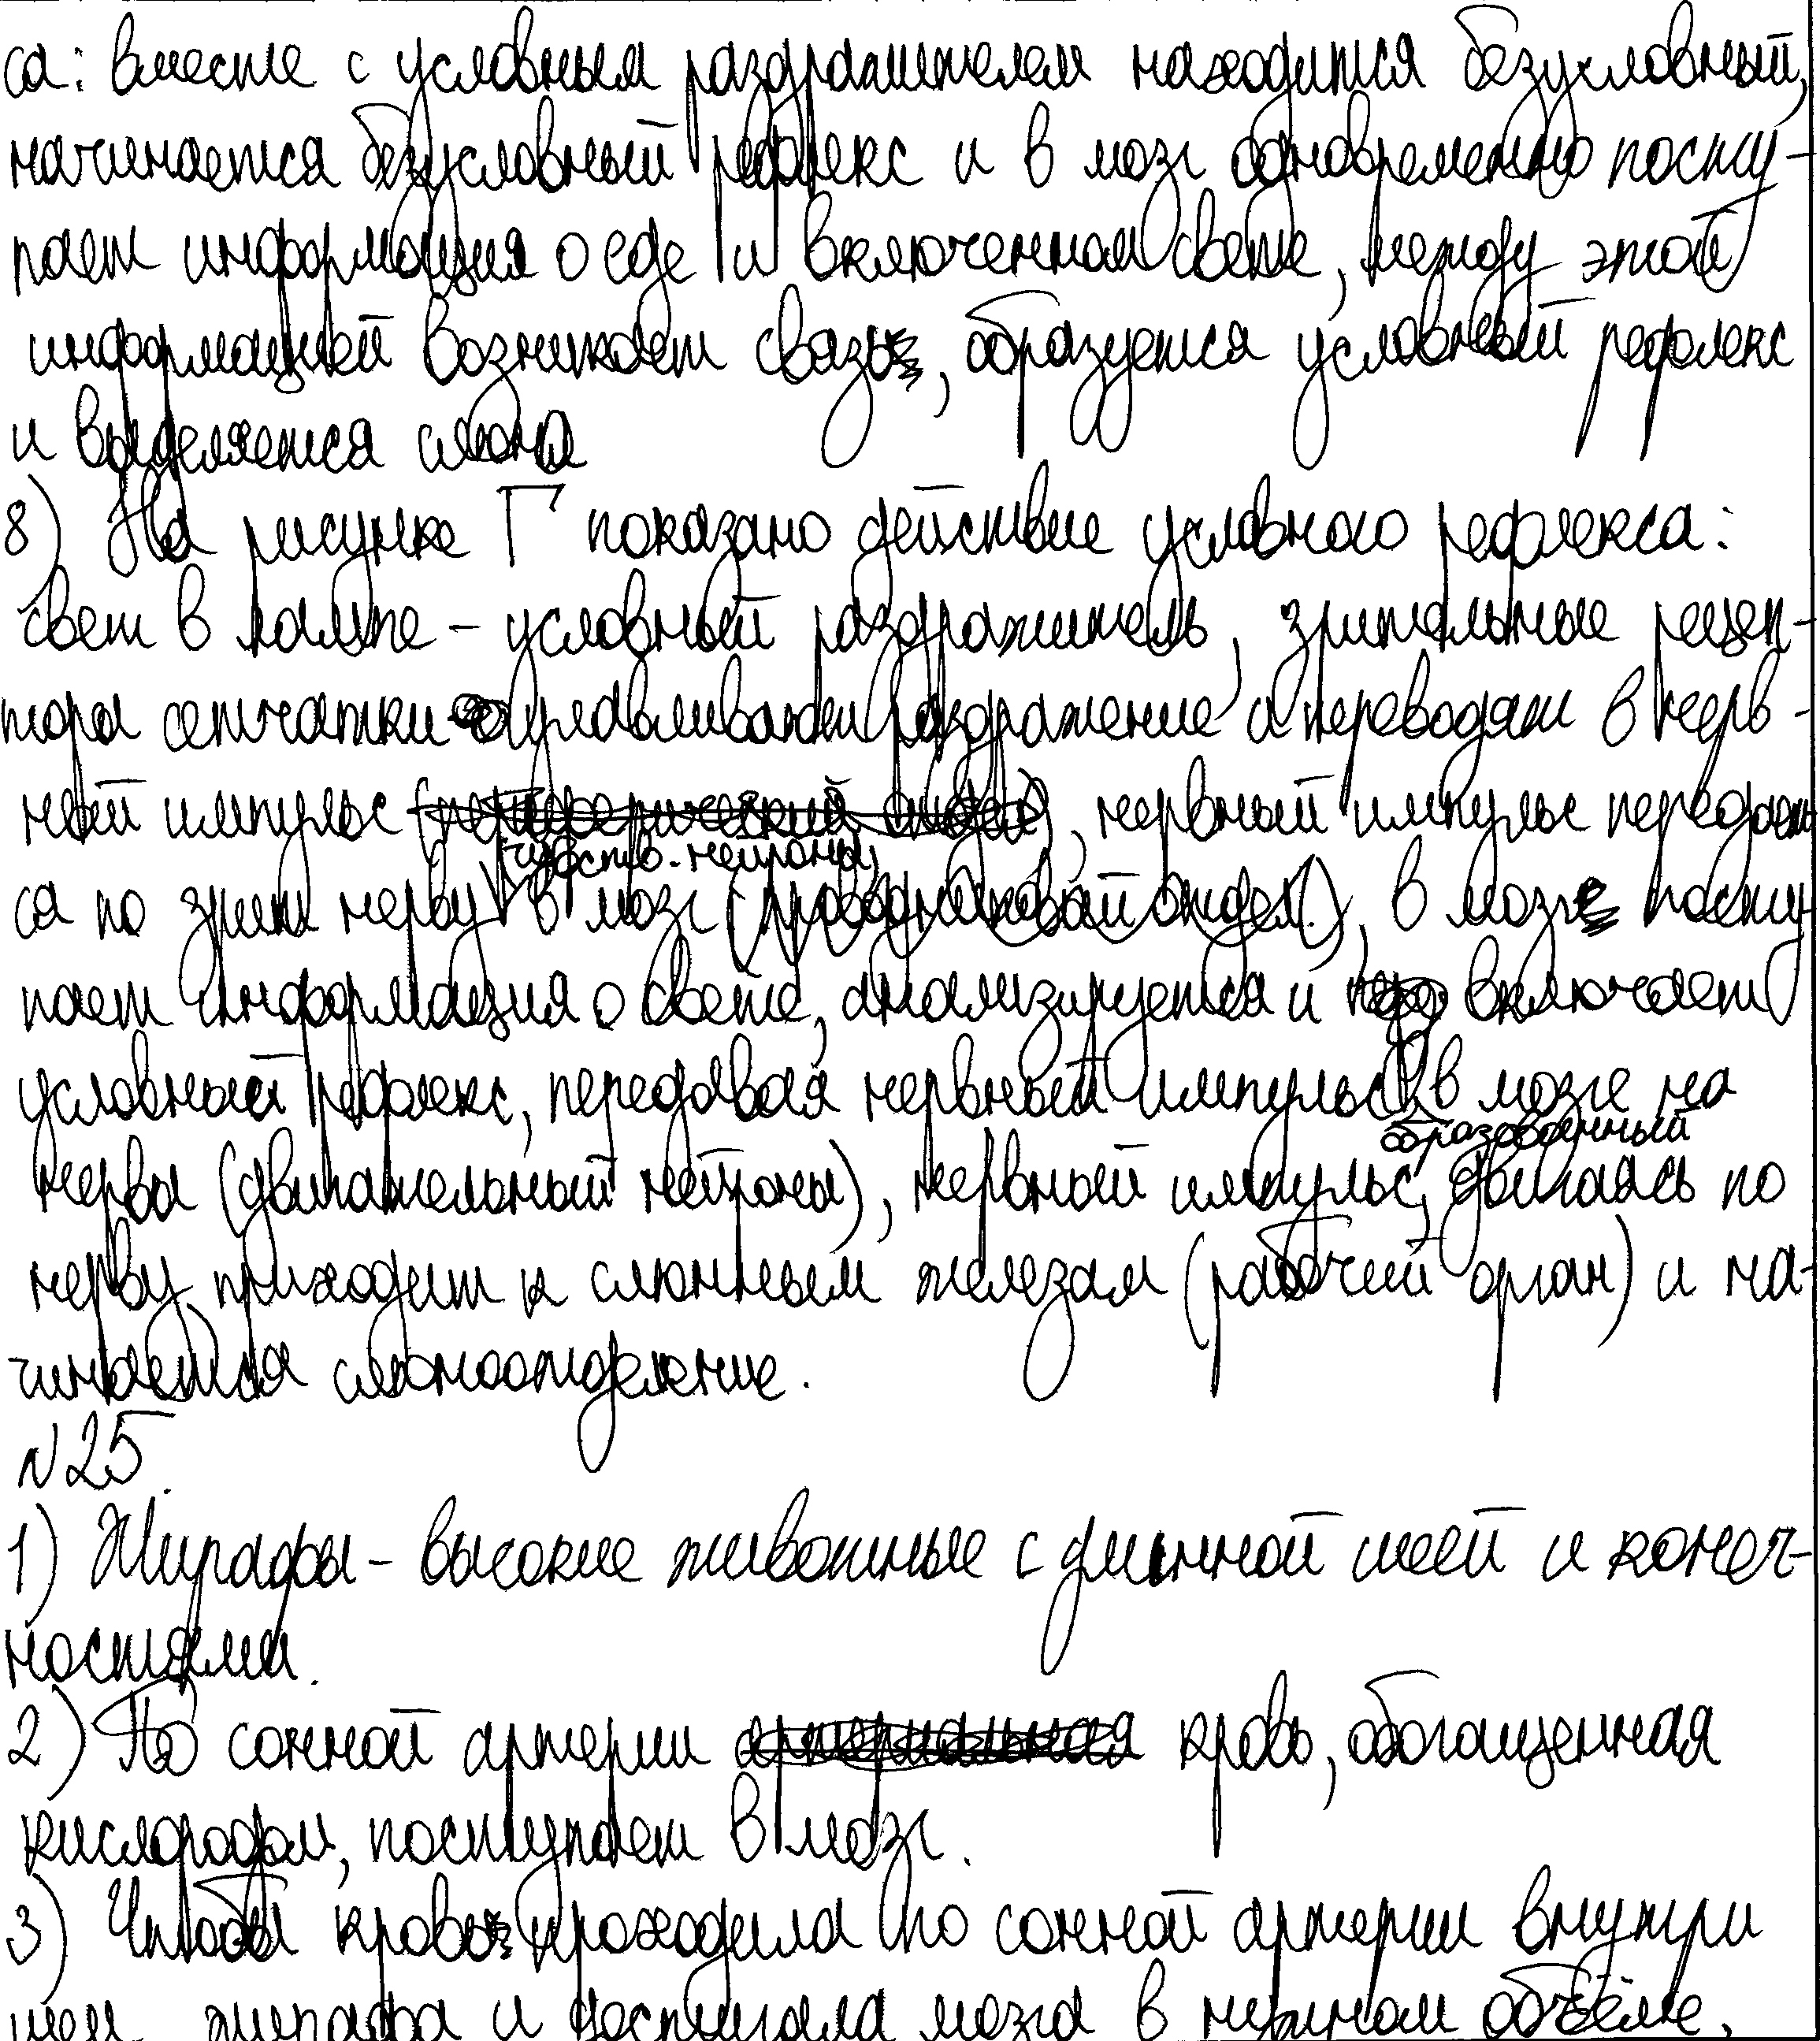 са: вместе с условным раздражителем находится безусловный,
начинается безусловный рефлекс и в мозг одновременно посту-
пает информация о еде и включенном свете, между этой
информацией возникает связь, образуется условный рефлекс
и выделяется слюна
8) На рисунке Г показано действие условного рефлекса:
свет в лампе - условный раздражитель, зрительные рецеп-
тора сетчатки улавливают раздражение и переводят в нерв-
ный импульс, нервный импульс передает
чувств. нейроны
ся по зрит нерву в мозг (проводниковый отдел), в мозг посту
пает информация о свете, анализируется и включает
условный рефлекс, передавая нервный импульс в мозге на
образованный
нервы (двигательный нейроны), нервный импульс, двигаясь по
нерву приходит к слюнным железам (рабочий орган) и на-
чинается слюноотделение.
№25.
1) Жирафы - высокие животные с длинной шеей и конеч-
ностями.
2) По сонной артерии кровь, обогащенная
кислородом, поступает в мозг.
3) Чтобы кровь проходила по сонной артерии внутри
шеи жирафа и достигала мозга в нужном объёме,